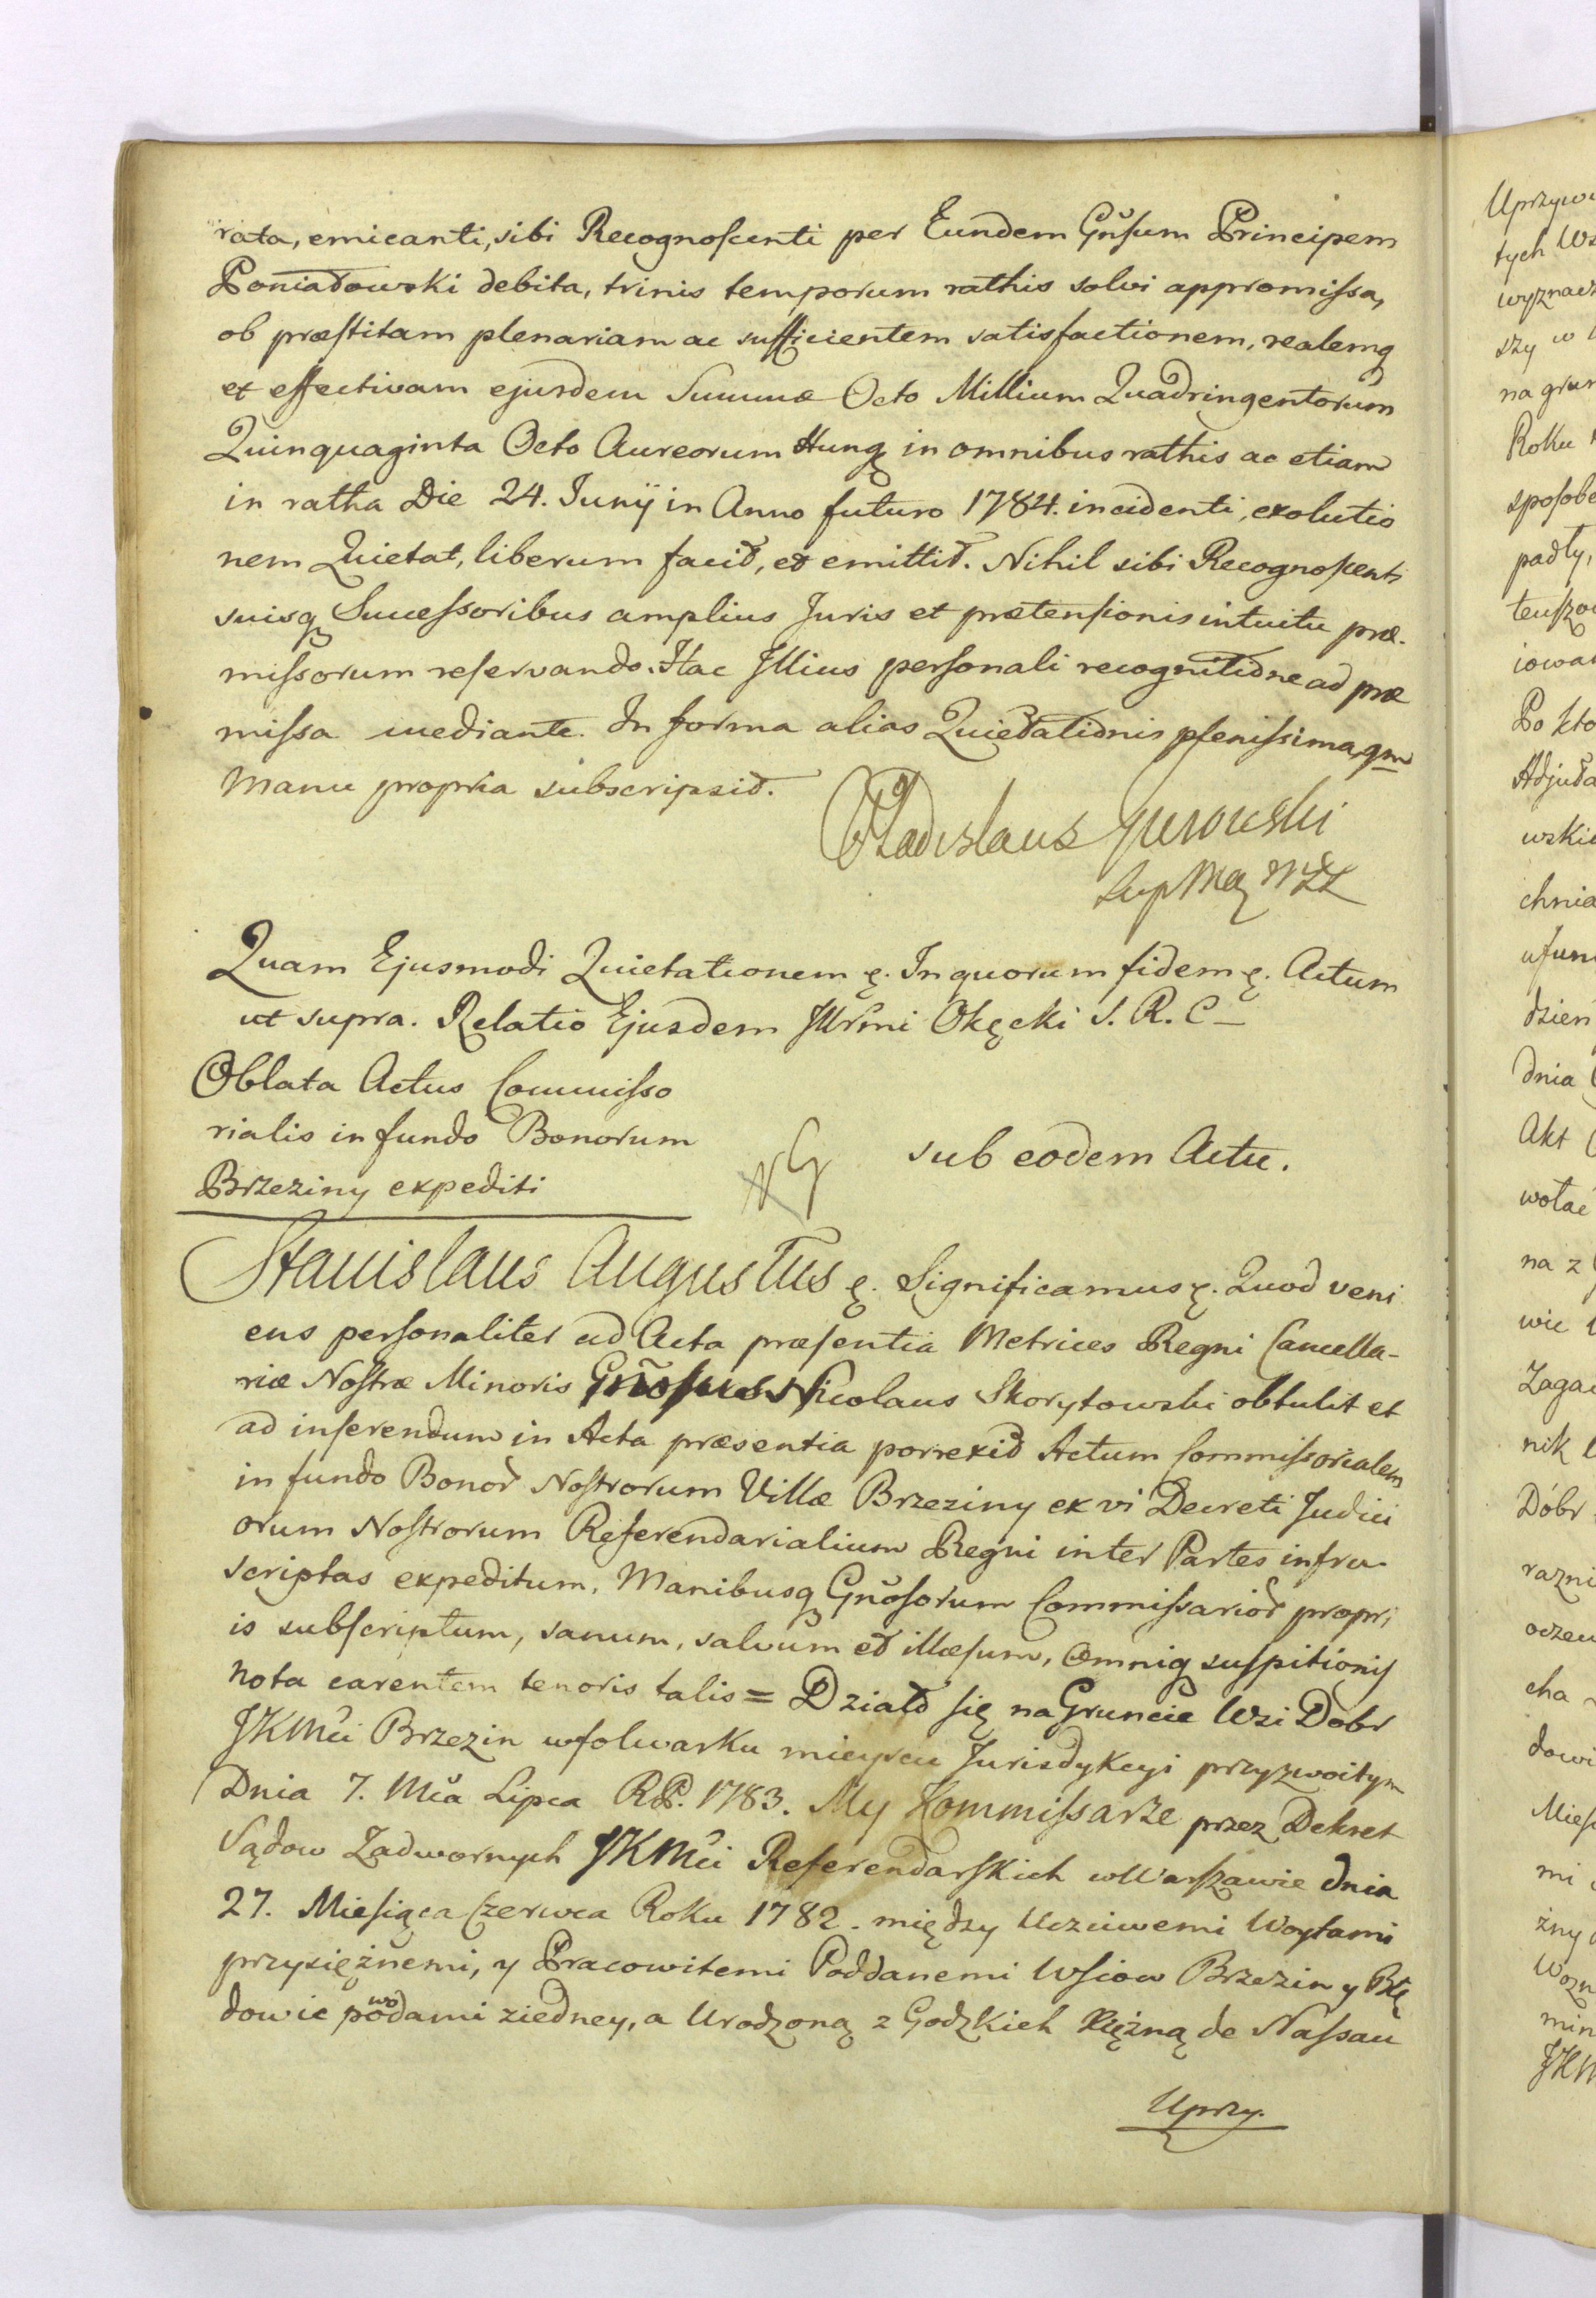 rata, emicanti, sibi Recognoscenti per Eundem Gñsum Principem
Poniatowski debita, trinis temporum rathis solvi appromissa,
ob præstitam plenariam ac sufficientem satisfactionem, realemq
et effectivam ejusdem Summæ Octo Millium Quadringentorum
Quinquaginta Octo Aureorum Hung in omnibus rathis ac etiam
in ratha Die 24. Junij in Anno futuro 1784. incidenti, exolutio
nem Quietat, liberum facit, et emittit. Nihil sibi Recognoscenti
suisq Successoribus amplius Juris et prætensionis intuitu præ-
missorum reservando. Hac Illius personali recognitione ad præ
missa mediante. In forma alias Quietationis plenissima, qm
Manu propria subscripsit.
Władislaus Gurowski
Sup Ma WXL
Quam Ejusmodi Quietationem ę. In quorum fidem ę. Actum
ut supra. Relatio Ejusdem Illrmi Okęcki S. R. C
Oblata Actus Commisso
rialis in fundo Bonorum
Brzeziny expediti
sub eodem Actu.
Stanislaus Augustus ę. Significamus ę. Quod veni
ens personaliter ad Acta præsentia Metrices Regni Cancella-
riæ Nostræ Minoris Gnosus Nicolaus Skorytowski obtulit et
ad inserendum in Acta præsentia porrexit Actum Commissorialem
in fundo Bonor Nostrorum Villæ Brzeziny ex vi Decreti Judici
orum Nostrorum Referendarialium Regni inter Partes infra
scriptas expeditum, Manibusq Gnosorum Commissarior propri
is subscriptum, sanum, salvum et illæsum, omniq suspitionis
nota carentem tenoris talis = Działo się na Gruncie Wsi Dobr
JKMci Brzezin w folwarku mieyscu Jurisdykcyi przyzwoitym
Dnia 7. Mca Lipca RP. 1783. My Kommissarze przez Dekret
Sądow Zadwornych JKMci Referendarskich w Warszawie dnia
27. Miesiąca Czerwca Roku 1782. między Uczciwemi Woytami
przysiężnemi, y Pracowitemi Poddanemi Wsiow Brzezin y Błę
dowie powodami ziedney, a Urodzoną z Godzkich Xiężną de Nassau
Uprzy.